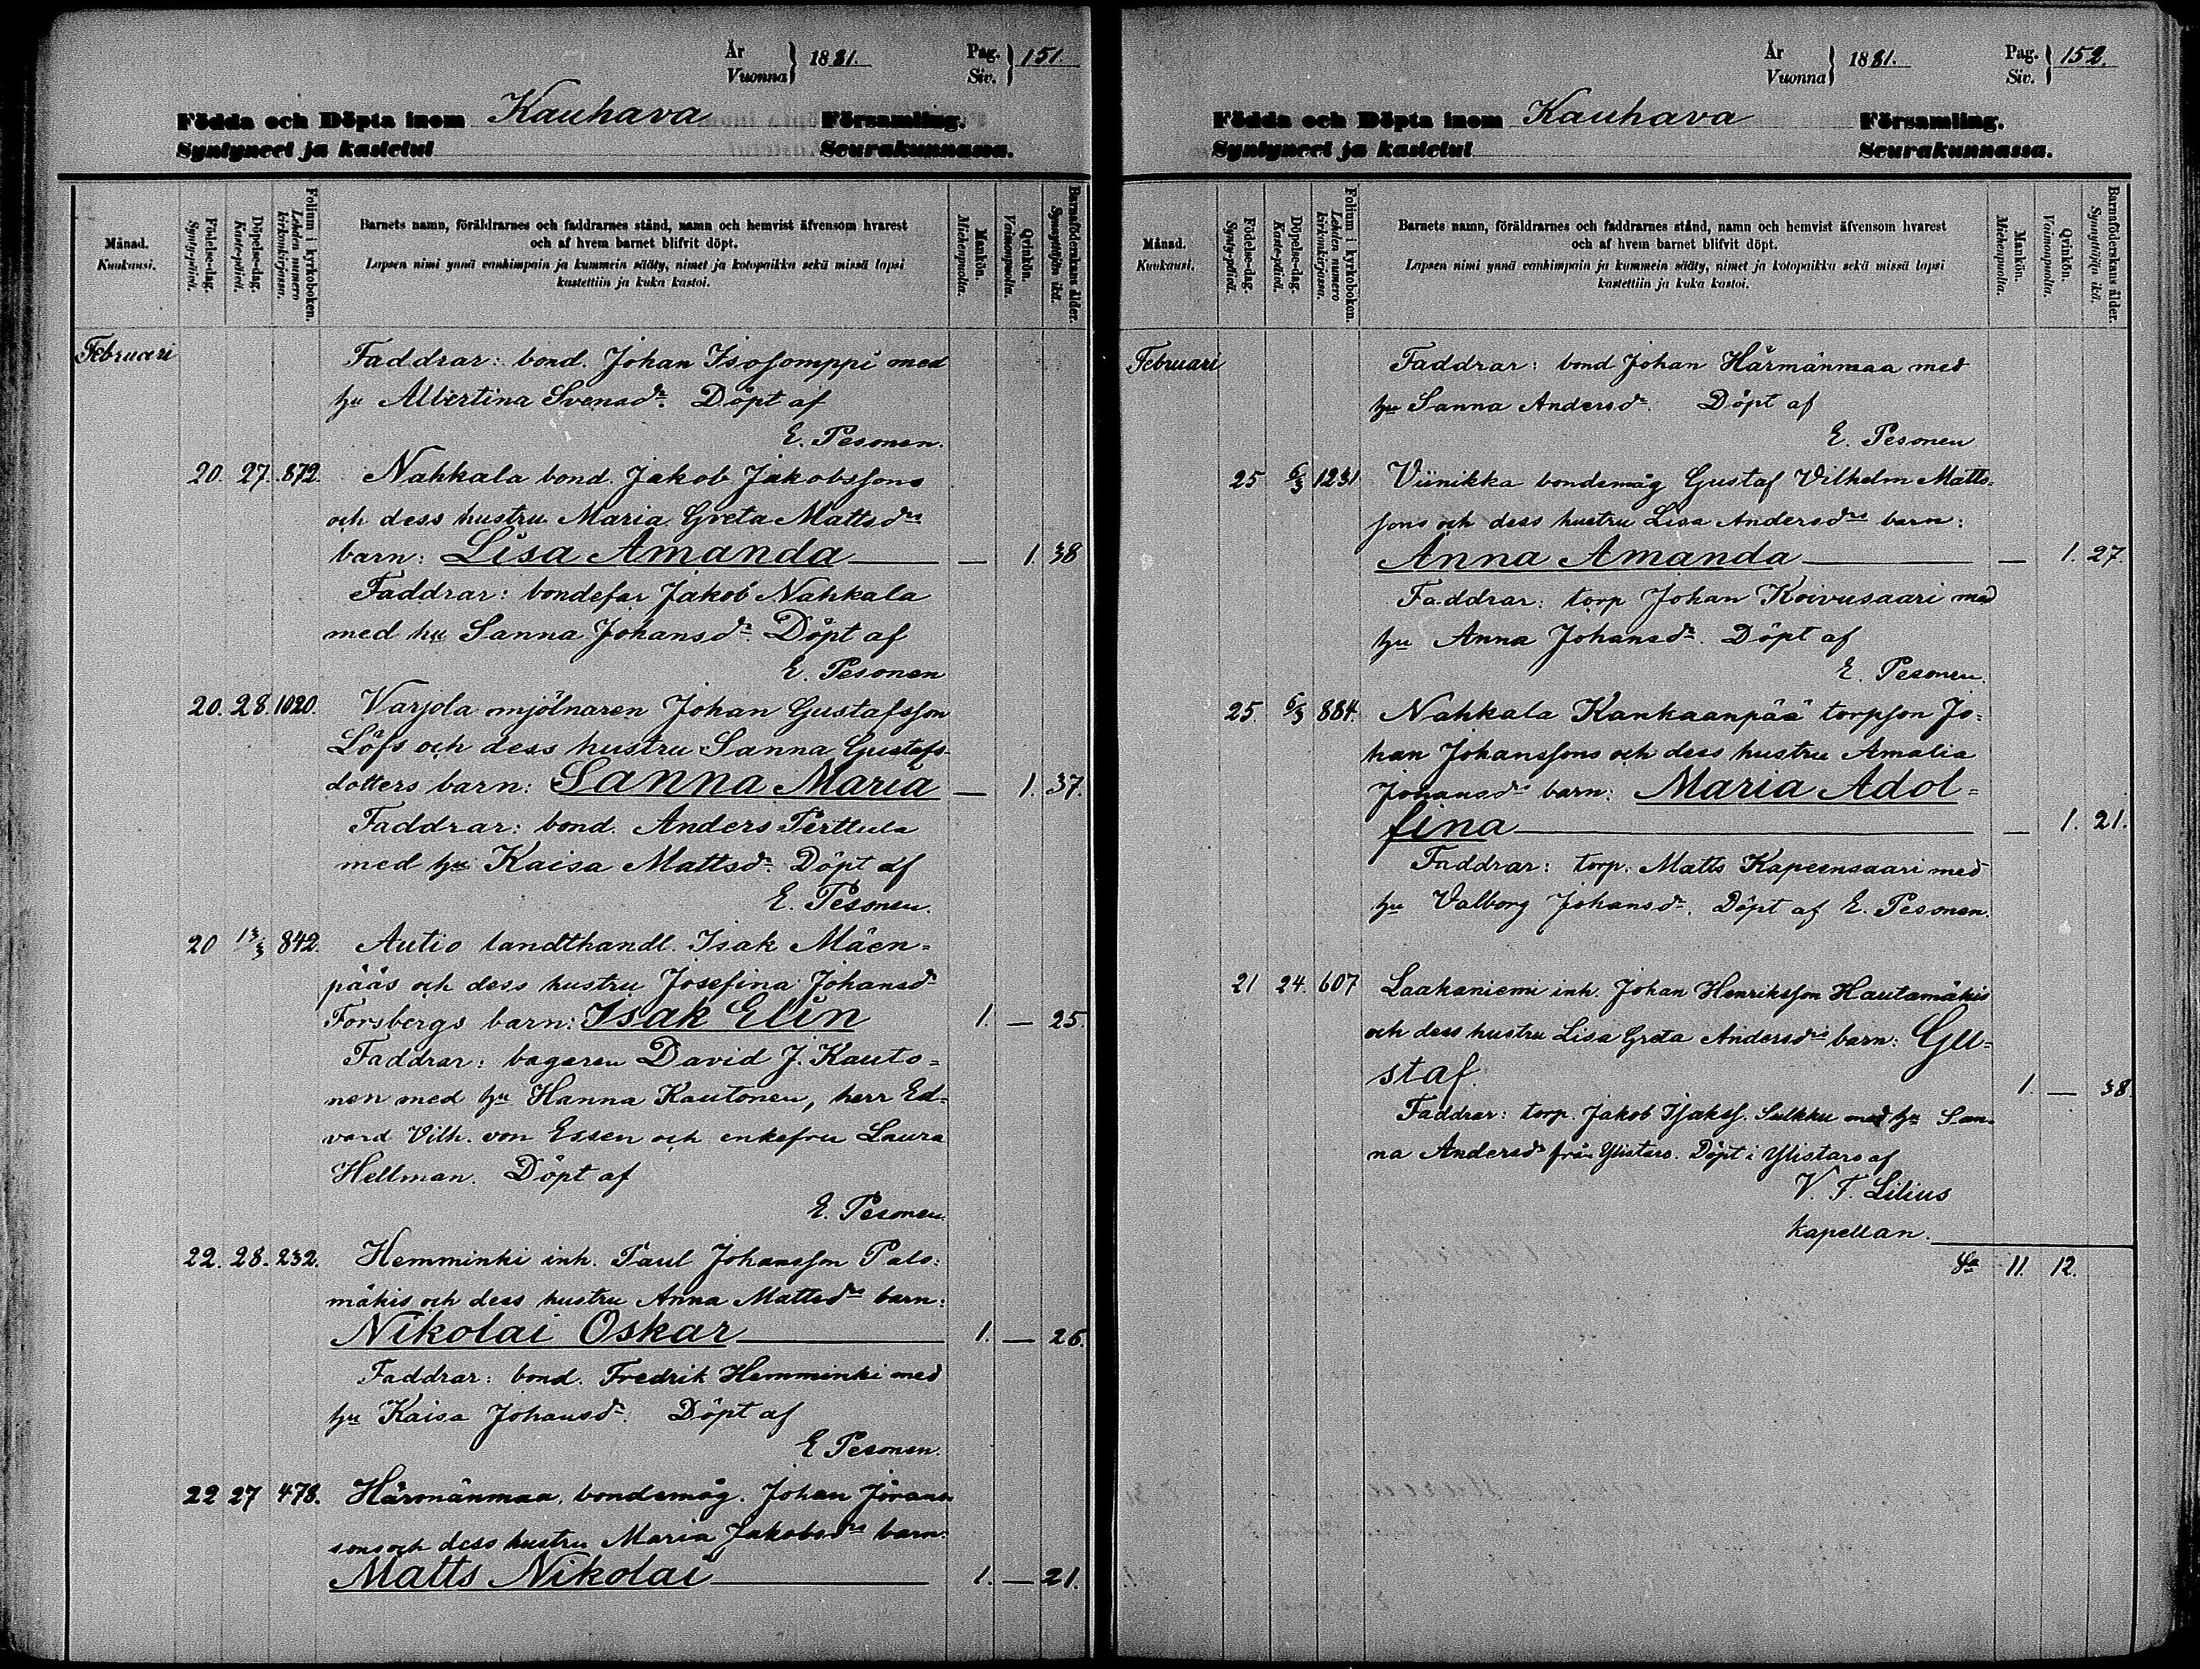 År
Vuonna } 1881.
Pag.
Siv. } 151.
Födda och Döpta inom Kauhava Församling.
Syntyneet ja kastetut Seurakunnassa.
Månad.
Kuukausi.
Födelse-dag.
Synty-päivä.
Döpelse-dag.
Kaste-päivä.
Folium i kyrkoboken.
Lehden numero kirkonkirjassa.
Barnets namn, föräldrarnes och faddrarnes stånd, namn och hemvist äfvensom hvarest
och af hvem barnet blifvit döpt.
Lapsen nimi ynnä vanhimpain ja kummein sääty, nimet ja kotopaikka sekä missä lapsi
kastettiin ja kuka kastoi.
Mankön.
Miehenpuolta.
Qvinkön.
Vaimonpuolta.
Barnaföderskans ålder.
Synnyttäjän ikä.
Februari Faddrar: bond. Johan Isosomppi med
hu Albertina Svensdr. Döpt af
E. Pesonen.
20. 27. 872. Nahkala bond. Jakob Jakobssons
och dess hustru Maria Greta Mattsdrs
barn: Lisa Amanda — — 1. 38
Faddrar: bondefar Jakob Nahkala
med hu Sanna Johansdr. Döpt af
E. Pesonen
20. 28. 1020. Varjola mjölnaren Johan Gustafsson
Löfs och dess hustru Sanna Gustafs-
dotters barn: Sanna Maria — 1. 37.
Faddrar: bond. Anders Perttula
med hu Kaisa Mattsdr. Döpt af
E. Pesonen.
20 13/3 842. Autio landthandl. Isak Mäen-
pääs och dess hustru Josefina Johansdr
Forsbergs barn: Isak Elin 1. — 25.
Faddrar: bagaren David J. Kauto-
nen med hu Hanna Kautonen, herr Ed-
vard Vilh. von Essen och enkefru Laura
Hellman. Döpt af
E. Pesonen
22. 28. 232. Hemminki inh. Paul Johansson Palo-
mäkis och dess hustru Anna Mattsdrs barn:
Nikolai Oskar — 1. — 26.
Faddrar: bond. Fredrik Hemminki med
hu Kaisa Johansdr. Döpt af
E Pesonen.
22 27 478. Härmänmaa, bondemåg. Johan Johans-
sons och dess hustru Maria Jakobsdrs barn:
Matts Nikolai — 1. — 21.
År
Vuonna } 1881.
Pag.
Siv. } 152.
Födda och Döpta inom Kauhava Församling.
Syntyneet ja kastetut Seurakunnassa.
Månad.
Kuukausi.
Födelse-dag.
Synty-päivä.
Döpelse-dag.
Kaste-päivä.
Folium i kyrkoboken.
Lehden numero kirkonkirjassa.
Barnets namn, föräldrarnes och faddrarnes stånd, namn och hemvist äfvensom hvarest
och af hvem barnet blifvit döpt.
Lapsen nimi ynnä vanhimpain ja kummein sääty, nimet ja kotopaikka sekä missä lapsi
kastettiin ja kuka kastoi.
Mankön.
Miehenpuolta.
Qvinkön.
Vaimonpuolta.
Barnföderskans ålder.
Synnyttäjän ikä.
Februari Faddrar: bond Johan Härmänmaa med
hu Sanna Andersdr. Döpt af
E. Pesonen
25 6/3 1231 Viinikka bondemåg Gustaf Vilhelm Matts-
sons och dess hustru Lisa Andersdrs barn:
Anna Amanda — — 1. 27.
Faddrar: torp Johan Koivusaari med
hu Anna Johansdr. Döpt af
E. Pesonen.
25. 6/3 884. Nahkala Kankaanpää torpson Jo-
han Johanssons och dess hustru Amalia
Johansdrs barn: Maria Adol-
fina — — 1. 21.
Faddrar: torp. Matts Kapeensaari med
hu Valborg Johansdr. Döpt af E. Pesonen.
21 24. 607 Laakaniemi inh. Johan Henriksson Hautamäkis
och dess hustru Lisa Greta Andersdrs barn: Gu-
staf. 1. — 38.
Faddrar: torp. Jakob Isakss. Sulkku med hu San-
na Andersdr från Ylistaro. Döpt i Ylistaro af
V. F. Lilius
kapellan.
11. 12.